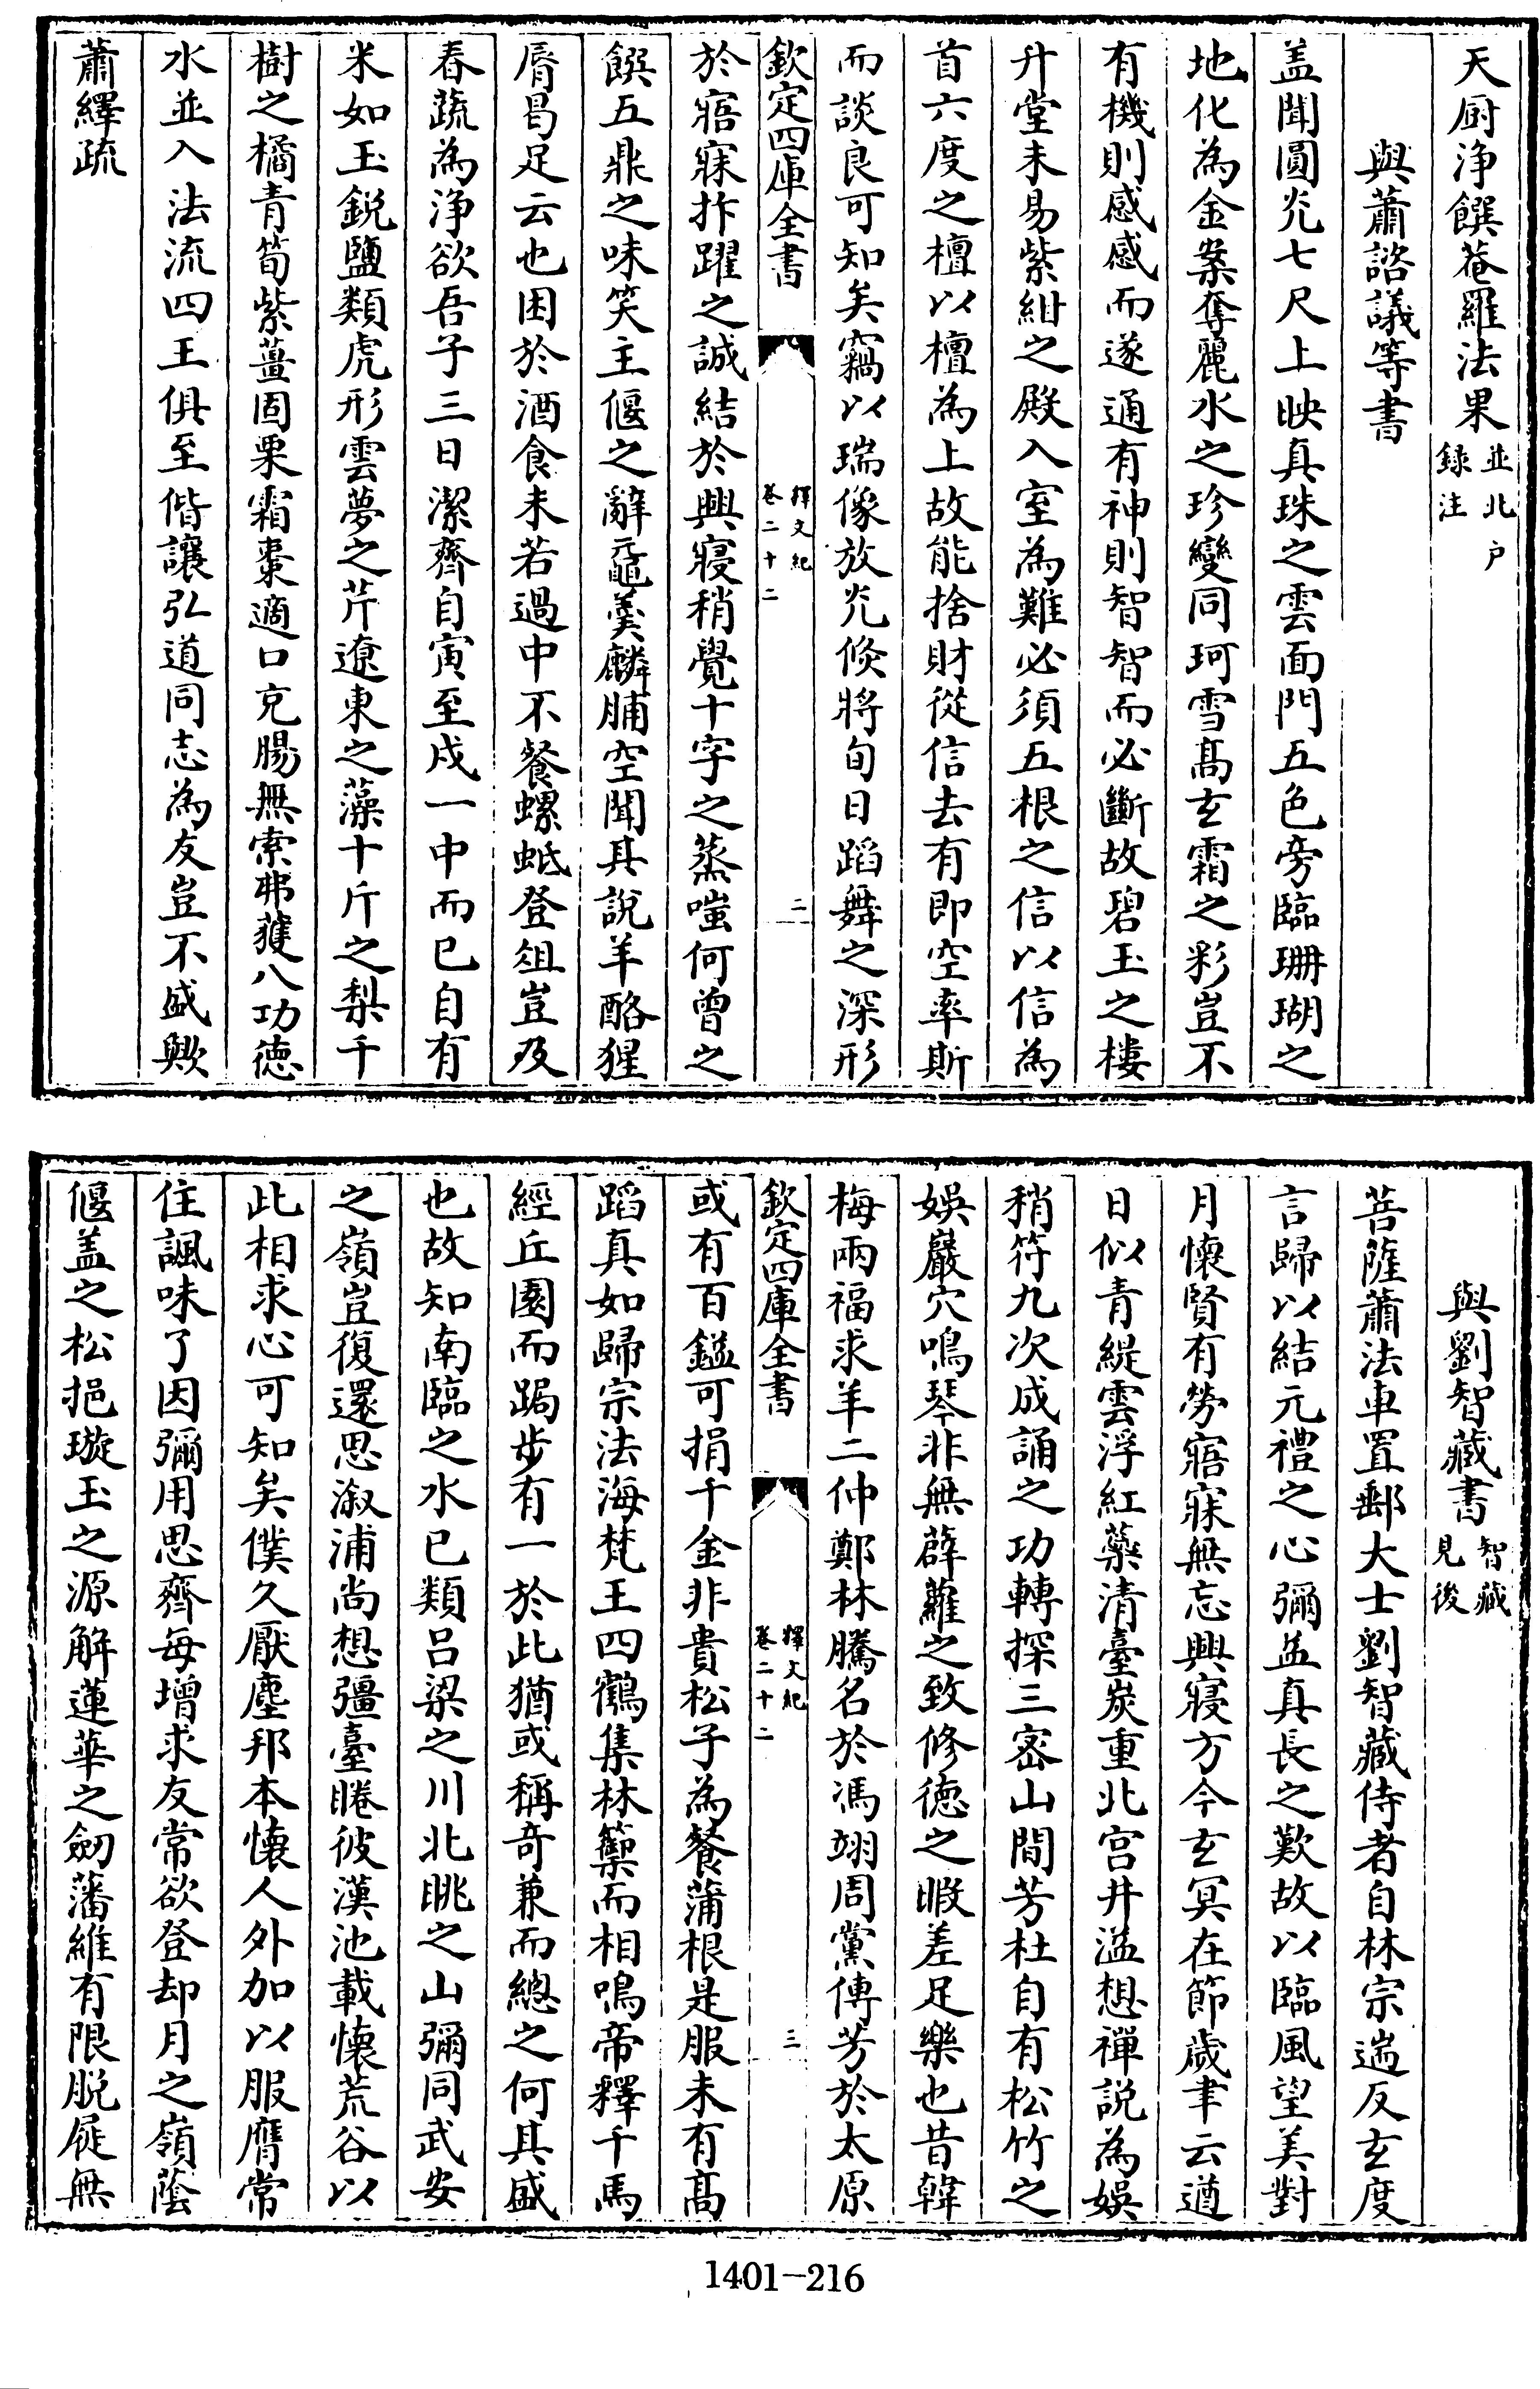 天厨浄饌菴羅法果並北户
錄注
與蕭諮議等書
盖聞圓光七尺上映真珠之雲面門五色旁臨珊瑚之
地化為金案奪麗水之珍變同珂雪髙玄霜之彩豈不
有機則感感而遂通有神則智智而必斷故碧玉之樓
升堂未易紫紺之殿入室為難必須五根之信以信為
首六度之檀以檀為上故能捨財從信去有即空率斯
而談良可知矣竊以瑞像放光倐將旬日蹈舞之深形
欽定四庫全書
釋文紀
卷二十二
二
於寤寐抃躍之誠結於興寢稍覺十字之蒸嗤何曾之
饌五鼎之味笑主偃之辭黿羮麟脯空聞其說羊酪猩
脣曷足云也困於酒食未若過中不餐螺蚳登俎豈及
春蔬為浄欲吾子三日潔齊自寅至戍一中而已自有
米如玉鋭鹽類虎形雲夢之芹遼東之藻十斤之梨千
樹之橘青筍紫薑固栗霜棗適口充腸無索弗獲八功徳
水並入法流四王俱至偕讓弘道同志為友豈不盛歟
蕭繹疏
與劉智藏書智藏
見後
菩薩蕭法車置郵大士劉智藏侍者自林宗遄反玄度
言歸以結元禮之心彌益真長之歎故以臨風望美對
月懷賢有勞寤寐無忘興寢方今玄冥在節歲聿云遒
日似青緹雲浮紅蘂清臺炭重北宫井溢想禪説為娛
稍符九次成誦之功轉探三宻山間芳杜自有松竹之
娛巖穴鳴琴非無薜蘿之致修徳之暇差足樂也昔韓
梅兩福求羊二仲鄭林騰名於馮翊周黨傳芳於太原
欽定四庫全書
釋文紀
卷二十二
三
或有百鎰可捐千金非貴松子為餐蒲根是服未有髙
蹈真如歸宗法海梵王四鶴集林籞而相鳴帝釋千馬
經丘園而跼步有一於此猶或稱奇兼而總之何其盛
也故知南臨之水已類吕梁之川北眺之山彌同武安
之嶺豈復還思溆浦尚想彊臺睠彼漢池載懷荒谷以
此相求心可知矣僕久厭塵邦本懷人外加以服膺常
住諷味了因彌用思齊每增求友常欲登却月之嶺蔭
偃盖之松挹璇玉之源解蓮華之劒藩維有限脱屣無
1401-216